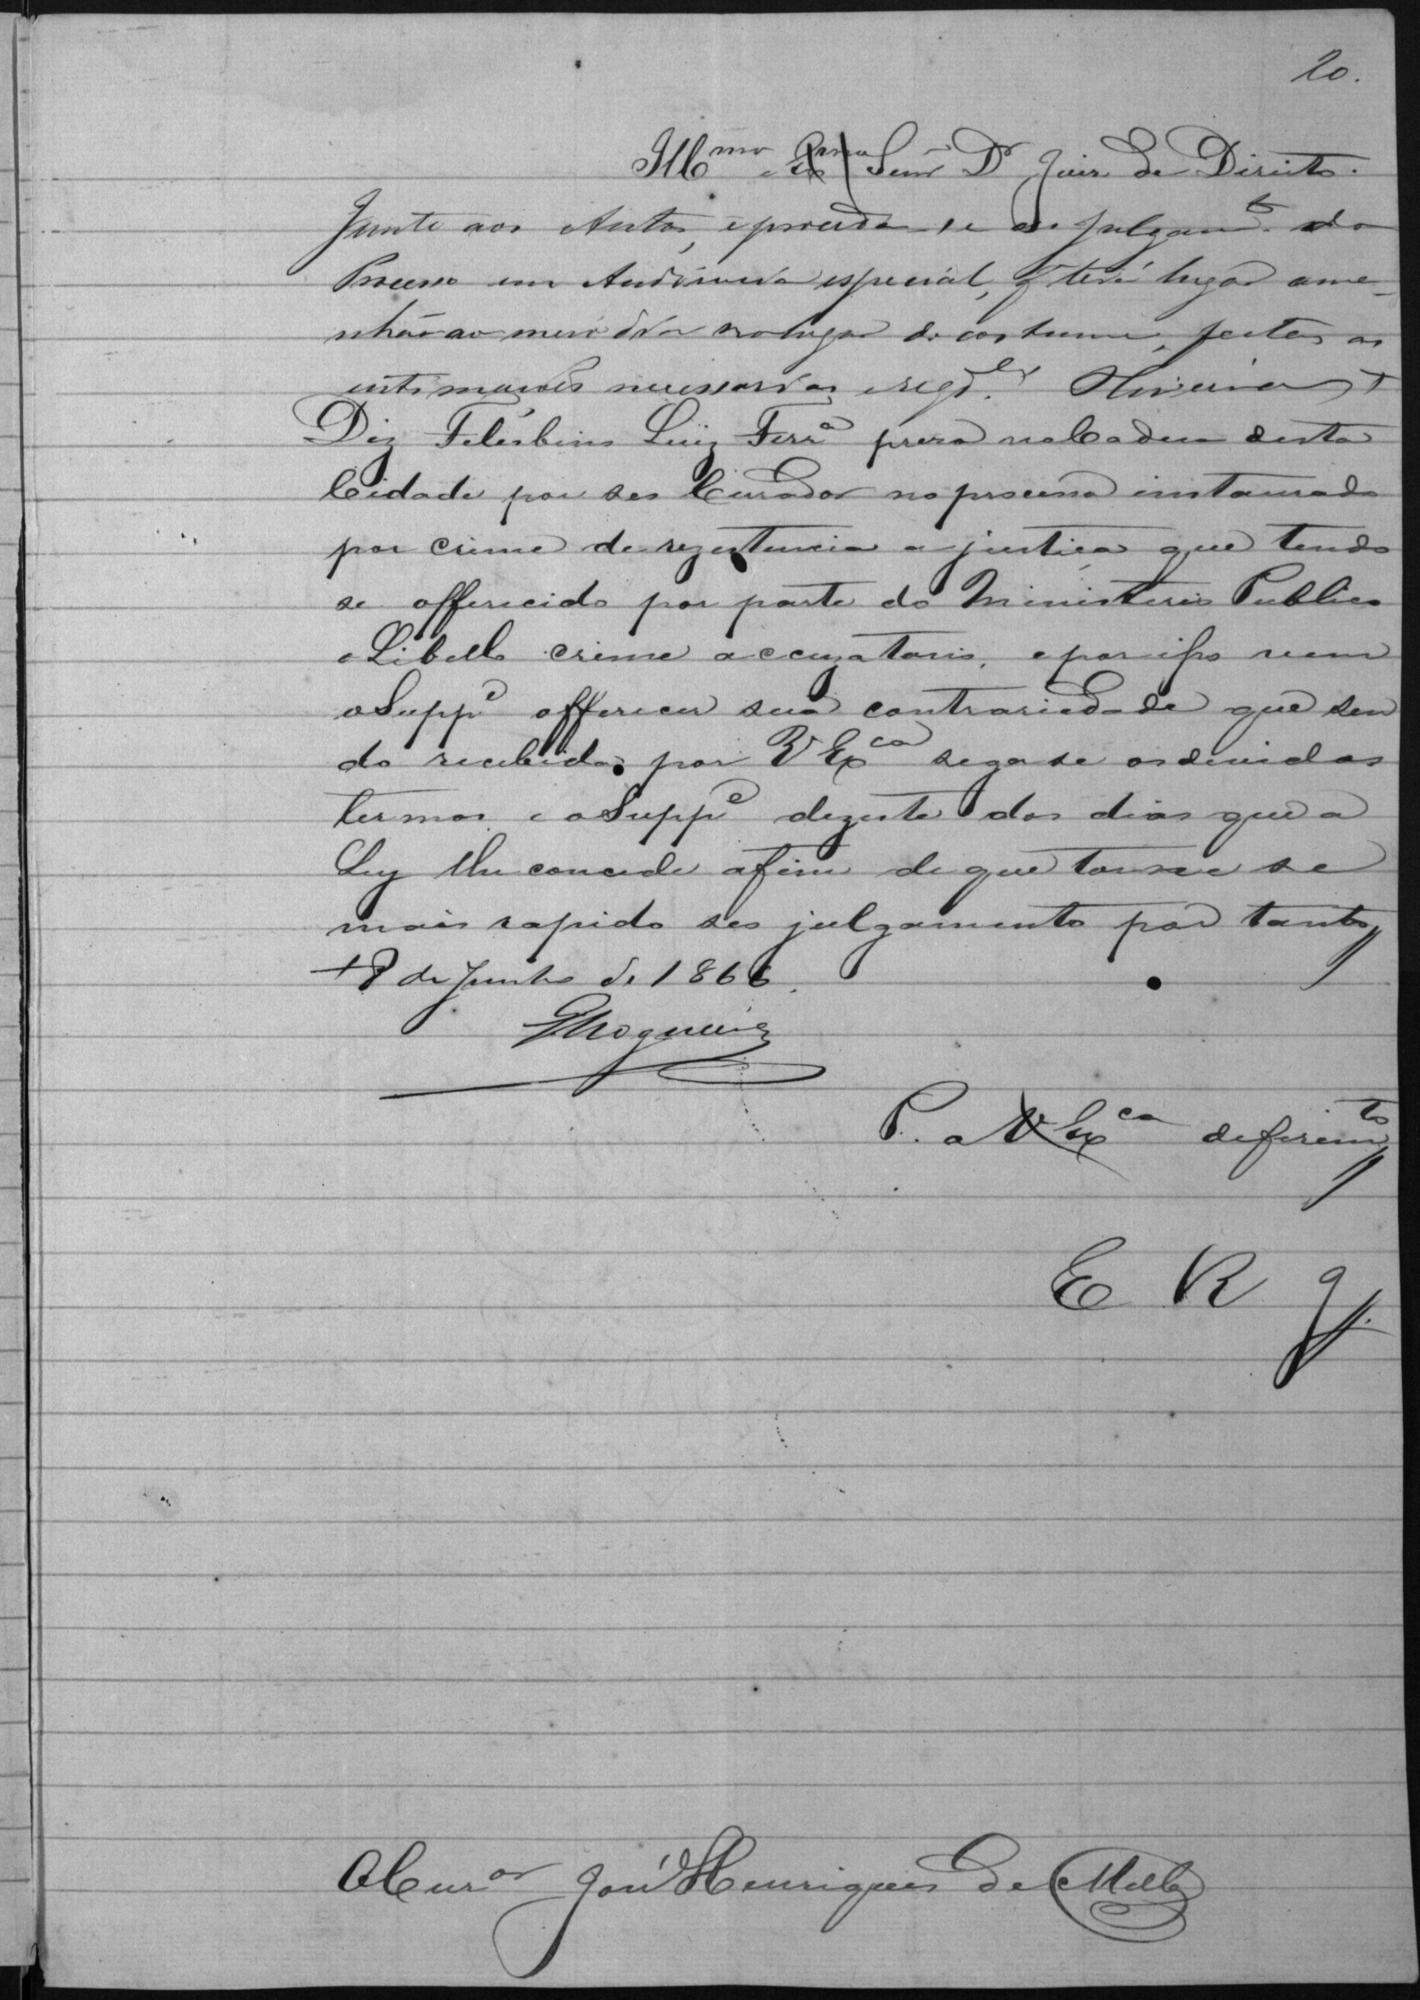 20.
Ill^mo e Ex^mo Senr Dr Juiz de Direito.
Junte aos Autos, e proceda-se ao julgam^to do
Processo em Audiencia especial, q terá lugar ama-
nhãa ao meio dia no lugar do costume, feitas as
intimaçoes necessarias
Diz Felisbino Luiz Ferr^a prezo na Cadeia desta
Cidade por seo Curador no processo instaurado
por crime de rezistencia a justiça que tendo
se offerecido por parte do Ministerio Publico
o Libello crime accuzatorio, e por isso vem
o Supp^e offerecer sua contrariedade que sen
do recebida por V Ex^ca sega se os devidos
termos e o Supp^e deziste dos dias que a
Ley lhe concede afim de que torne se
mais rapido seo julgamento por tanto
de Junho de 1866.
Nogueira
P. a V Ex^ca deferim^to
E R
O Cur^or José Henriques de Mello